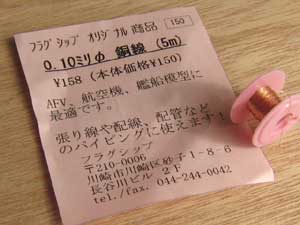 フラグシップ オリジナル商品 150
0.10ミリφ 銅線 (5m)
¥158 (本体価格¥150)
AFV、航空機、艦船模型に
最適です。
張り線や配線、配管など
のパイピングに使えます!
フラグシップ
〒210-0006
川崎市川崎区砂子1-8-6
長谷川ビル 2F
tel./fax. 044-244-0042